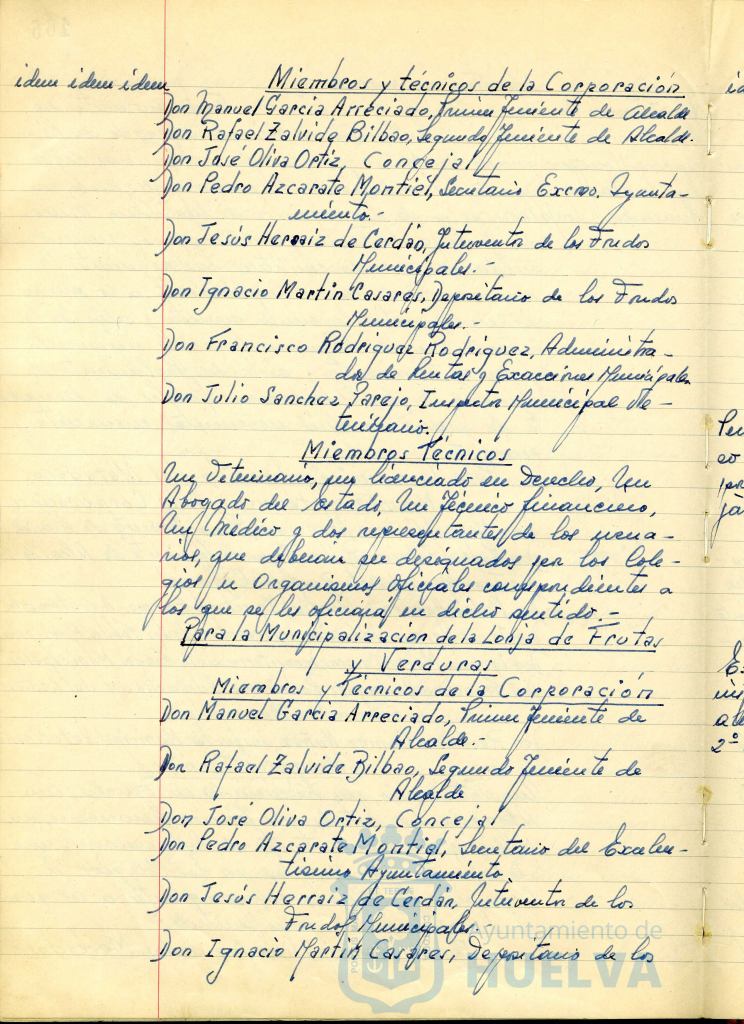 idem idem idem
Miembros y técnicos de la Corporación
Don Manuel Garcia Arreciado, Primer Teniente de Alcalde
Don Rafael Zalvide Bilbao, Segundo Teniente de Alcalde.
Don José Oliva Ortiz, Concejal
Don Pedro Azcarate Montiel, Secretario Excmo. Ayunta-
miento.-
Don Jesús Herraiz de Cerdán, Interventor de los Fondos
Municipales.-
Don Ignacio Martin Casares, Depositario de los Fondos
Municipales.-
Don Francisco Rodriguez Rodriguez, Administra-
dor de Rentas y Exacciones Municipales
Don Julio Sanchez Parejo, Inspector Municipal Ve-
terinario.
Miembros Técnicos
Un Veterinario, un licenciado en Derecho, Un
Abogado del Estado, Un Técnico financiero,
Un Médico y dos representantes de los usua-
rios, que deberan ser designados por los Cole-
gios u Organismos Oficiales correspondientes a
los que se les oficiará en dicho sentido.-
Para la Municipalización de la Lonja de Frutas
y Verduras
Miembros y Técnicos de la Corporación
Don Manuel Garcia Arreciado, Primer Teniente de
Alcalde.-
Don Rafael Zalvide Bilbao, Segundo Teniente de
Alcalde
Don José Oliva Ortiz, Concejal
Don Pedro Azcarate Montiel, Secretario del Excelen-
tisimo Ayuntamiento
Don Jesús Herraiz de Cerdán, Interventor de los
Fondos Municipales.
Don Ignacio Martin Casares, Depositario de los
Ayuntamiento de
HUELVA
2º